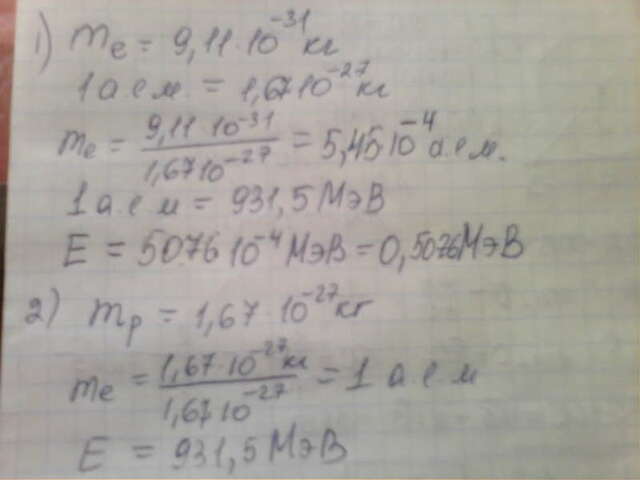 1) me = 9,11·10⁻³¹ кг
1 а.е.м. = 1,67 10⁻²⁷ кг
me = 9,11·10⁻³¹ / 1,67 10⁻²⁷ = 5,45 10⁻⁴ а.е.м.
1 а.е м = 931,5 МэВ
E = 5076 10⁻⁴ МэВ = 0,5076 МэВ
2) mp = 1,67 · 10⁻²⁷ кг
me = 1,67·10⁻²⁷ кг / 1,67 10⁻²⁷ = 1 а.е м
E = 931,5 МэВ